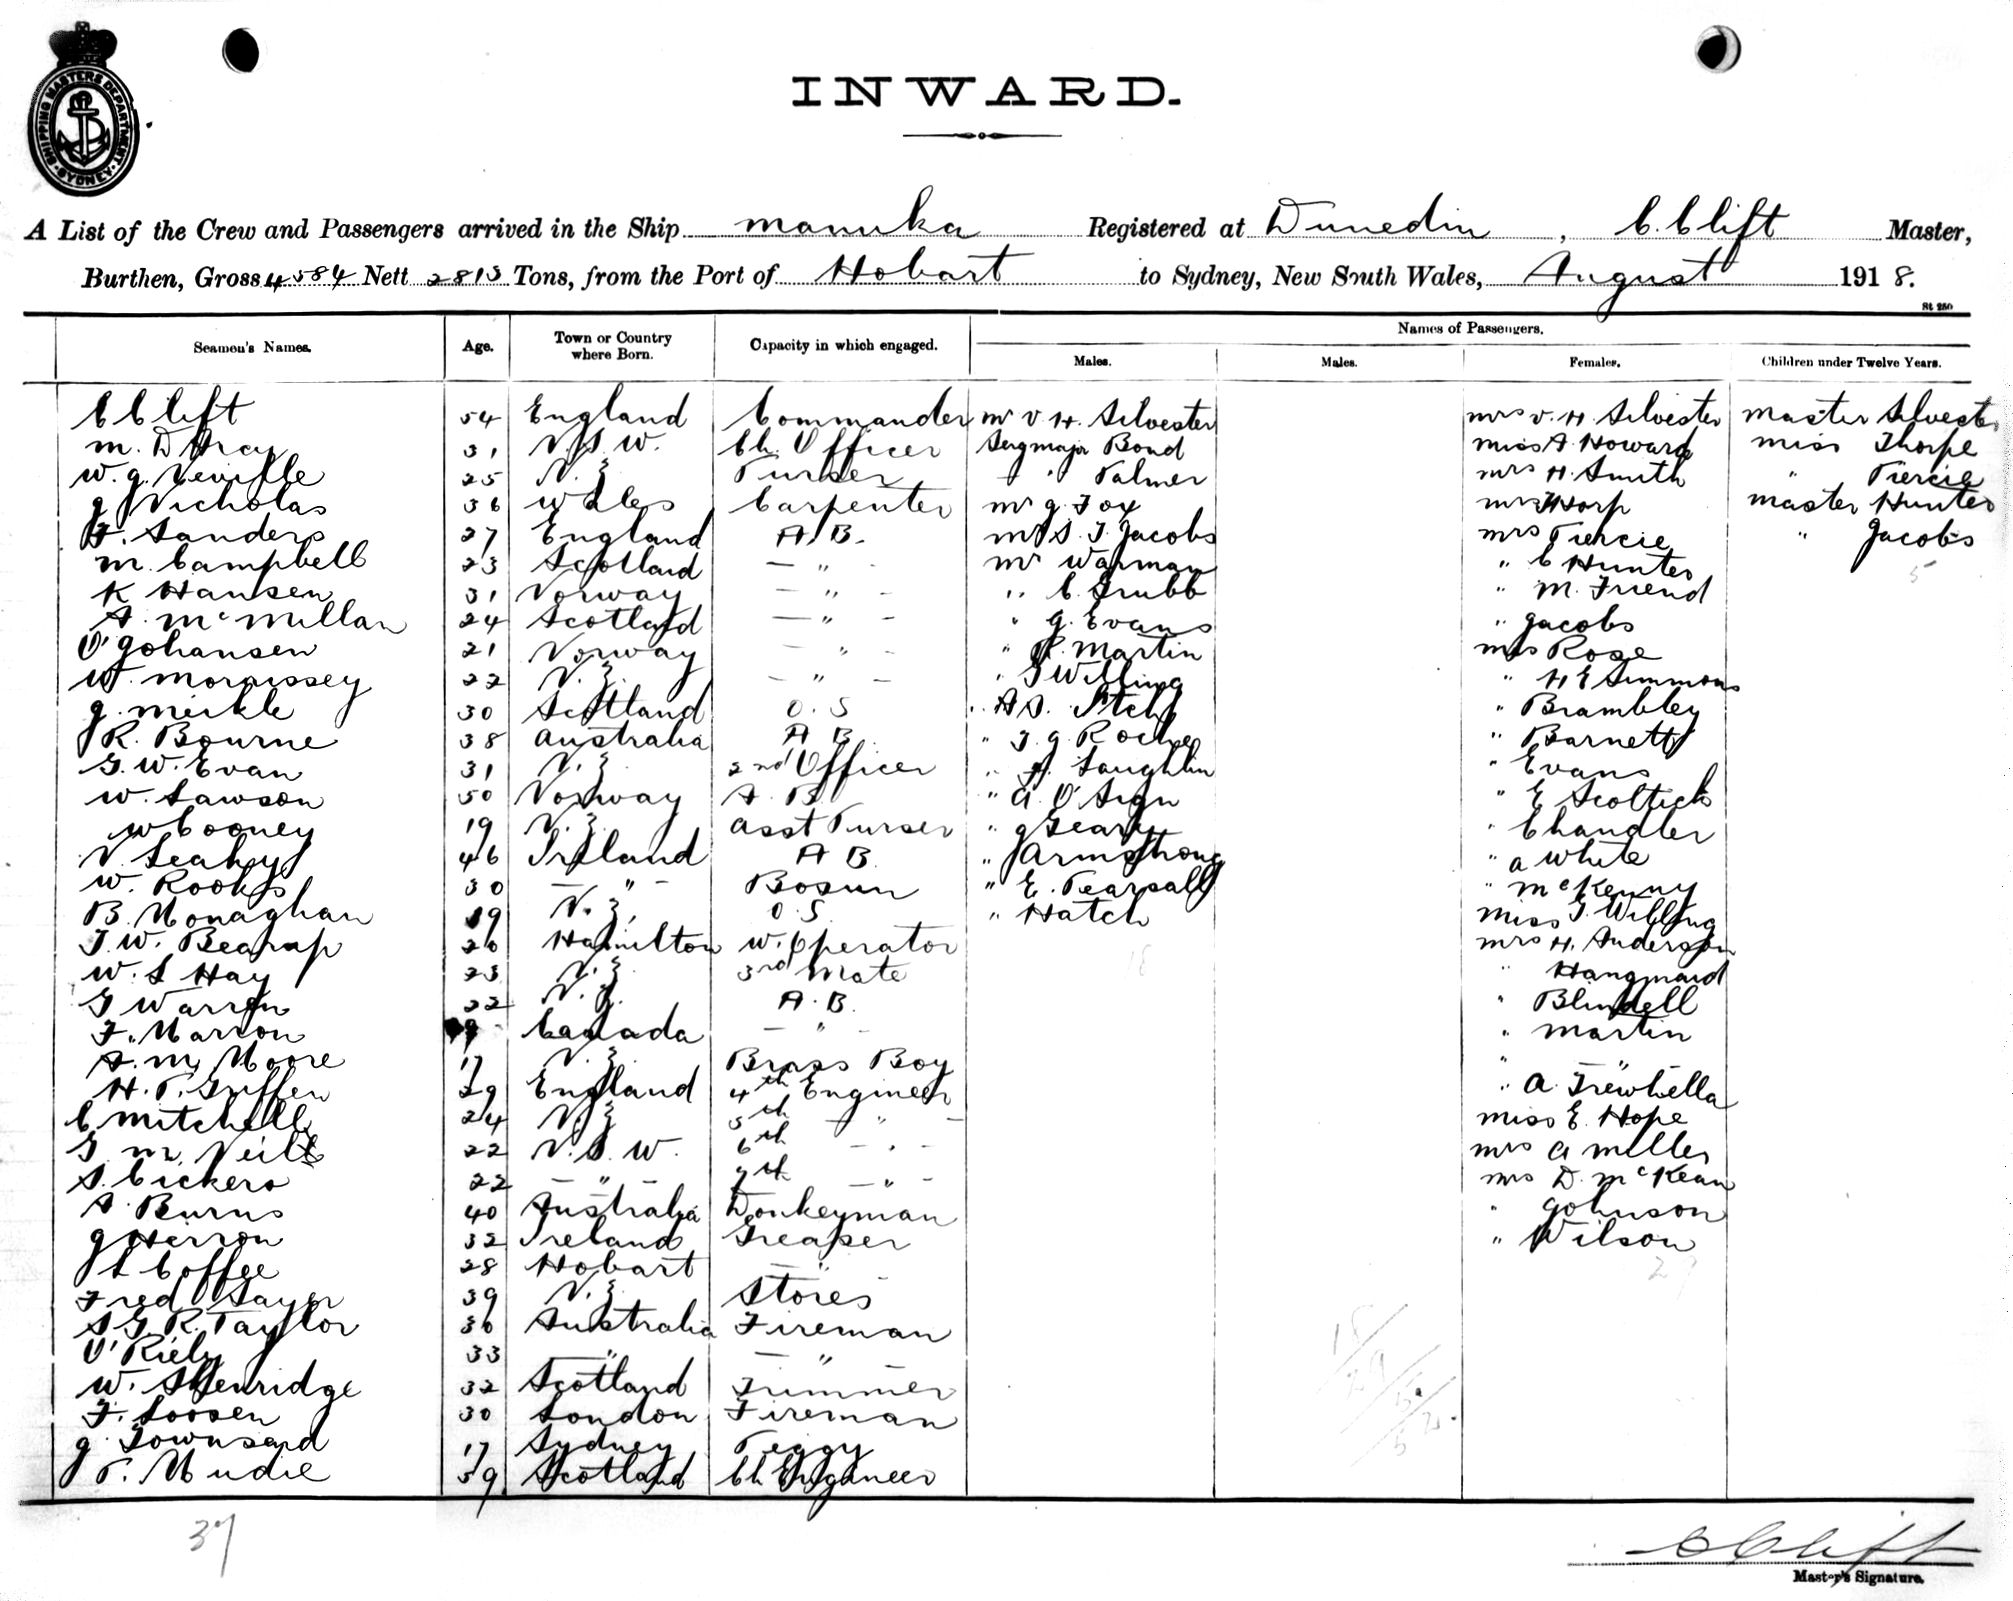 SHIPPING MASTERS DEPARTMENT
SYDNEY
INWARD.
A List of the Crew and Passengers arrived in the Ship Manuka Registered at Dunedin, C. Clift Master,
Burthen, Gross 4584 Nett 2813 Tons, from the Port of Hobart to Sydney, New South Wales, August 1918.
St 250
Names of Passengers.
Seamen's Names. Age. Town or Country where Born. Capacity in which engaged. Males. Males. Females. Children under Twelve Years.
C Clift 54 England Commander Mr V. H. Silvester Mrs V. H. Silvester Master Silvester
M. D'Arcy 31 N.S.W. Ch. Officer Sergmajr Bond Miss A Howard Miss Thorpe
W. G. Neville 25 N.Z. Purser " Palmer Mrs H. Smith " Piercie
J Nicholas 36 Wales Carpenter Mr G. Fox Mrs Master Hunter
F. Sanders 27 England A.B. Mr S. J. Jacobs Mrs Piercie " Jacobs
M. Campbell 23 Scotland — " — Mr Warman " C Hunter 5
K Hansen 31 Norway — " — " C. Grubb " M. Friend
A. McMillan 24 Scotland — " — " G. Evans " Jacobs
O' Johansen 21 Norway — " — " R. Martin Mrs Rose
W. Morrissey 22 N.Z. — " — " J Willing " H E Simmons
J. Meikle 30 Scotland O.S " A S. " Brambley
R. Bourne 38 Australia A B. " J. J. Roche " Barnett
G. W. Evan 31 N.Z. 2nd Officer " Laughlin " Evans
W. Lawson 50 Norway A. B " A. O' " E
W Cooney 19 N.Z. Asst Purser " J Geary " Chandler
N. Leahy 46 Ireland A B. " J Armstrong " A White
W. Rooks 30 — " — Bosun " E. Pearsall " McKenny
B. Monaghan 19 N.Z. O.S. " Hatch Miss J. Willing
J. W. Bearup 20 Hamilton W. Operator Mrs H. Anderson
W. L Hay 23 N.Z. 3rd Mate 18 "
G Warren 22 N.Z. A. B. " Blundell
F. Marron Canada — " — " Martin
A. M. Moore 17 N.Z. Brass Boy " — " —
H. P. Griffen 29 England 4th Engineer " A. Trewhella
C Mitchell 24 N.Z. 5th — " — Miss E. Hope
G. M. Neill 22 N.S.W. 6th — " — Mrs A Miller
S. Vickers 22 — " — 7th — " — Mrs D. McKean
A. Burns 40 Australia Donkeyman " Johnson
J Herron 32 Ireland Greaser " Wilson
L Coffee 28 Hobart — " — 27
Fred Sayer 39 N.Z. Stores
S. G R. Taylor 36 Australia Fireman
O' Riely 33 — " — — " —
W. 32 Scotland Trimmer
F. Loosen 30 London Fireman
J. Townsend 17 Sydney Peggy
P. Mudie 59 Scotland Ch Engineer
18
29
5
52
37
C Clift
Master's Signature.